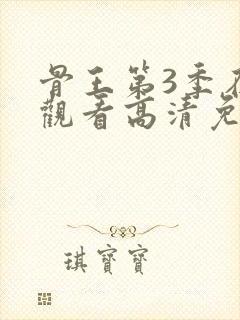 骨王第3季在
觀看高清免
琪寶寶